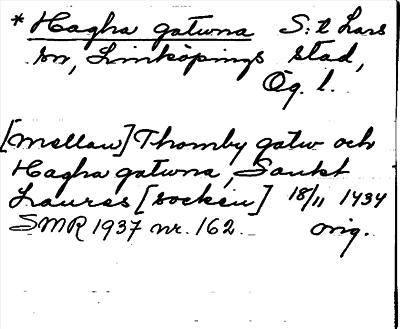 * Hagha gatwna S:t Lars
sn, Linköpings stad,
Ög. l.
[mellan] Thornby gatw och
Hagha gatwna, Sankt
Laurens [socken] 18/11 1434
SMR 1937 nr. 162. orig.